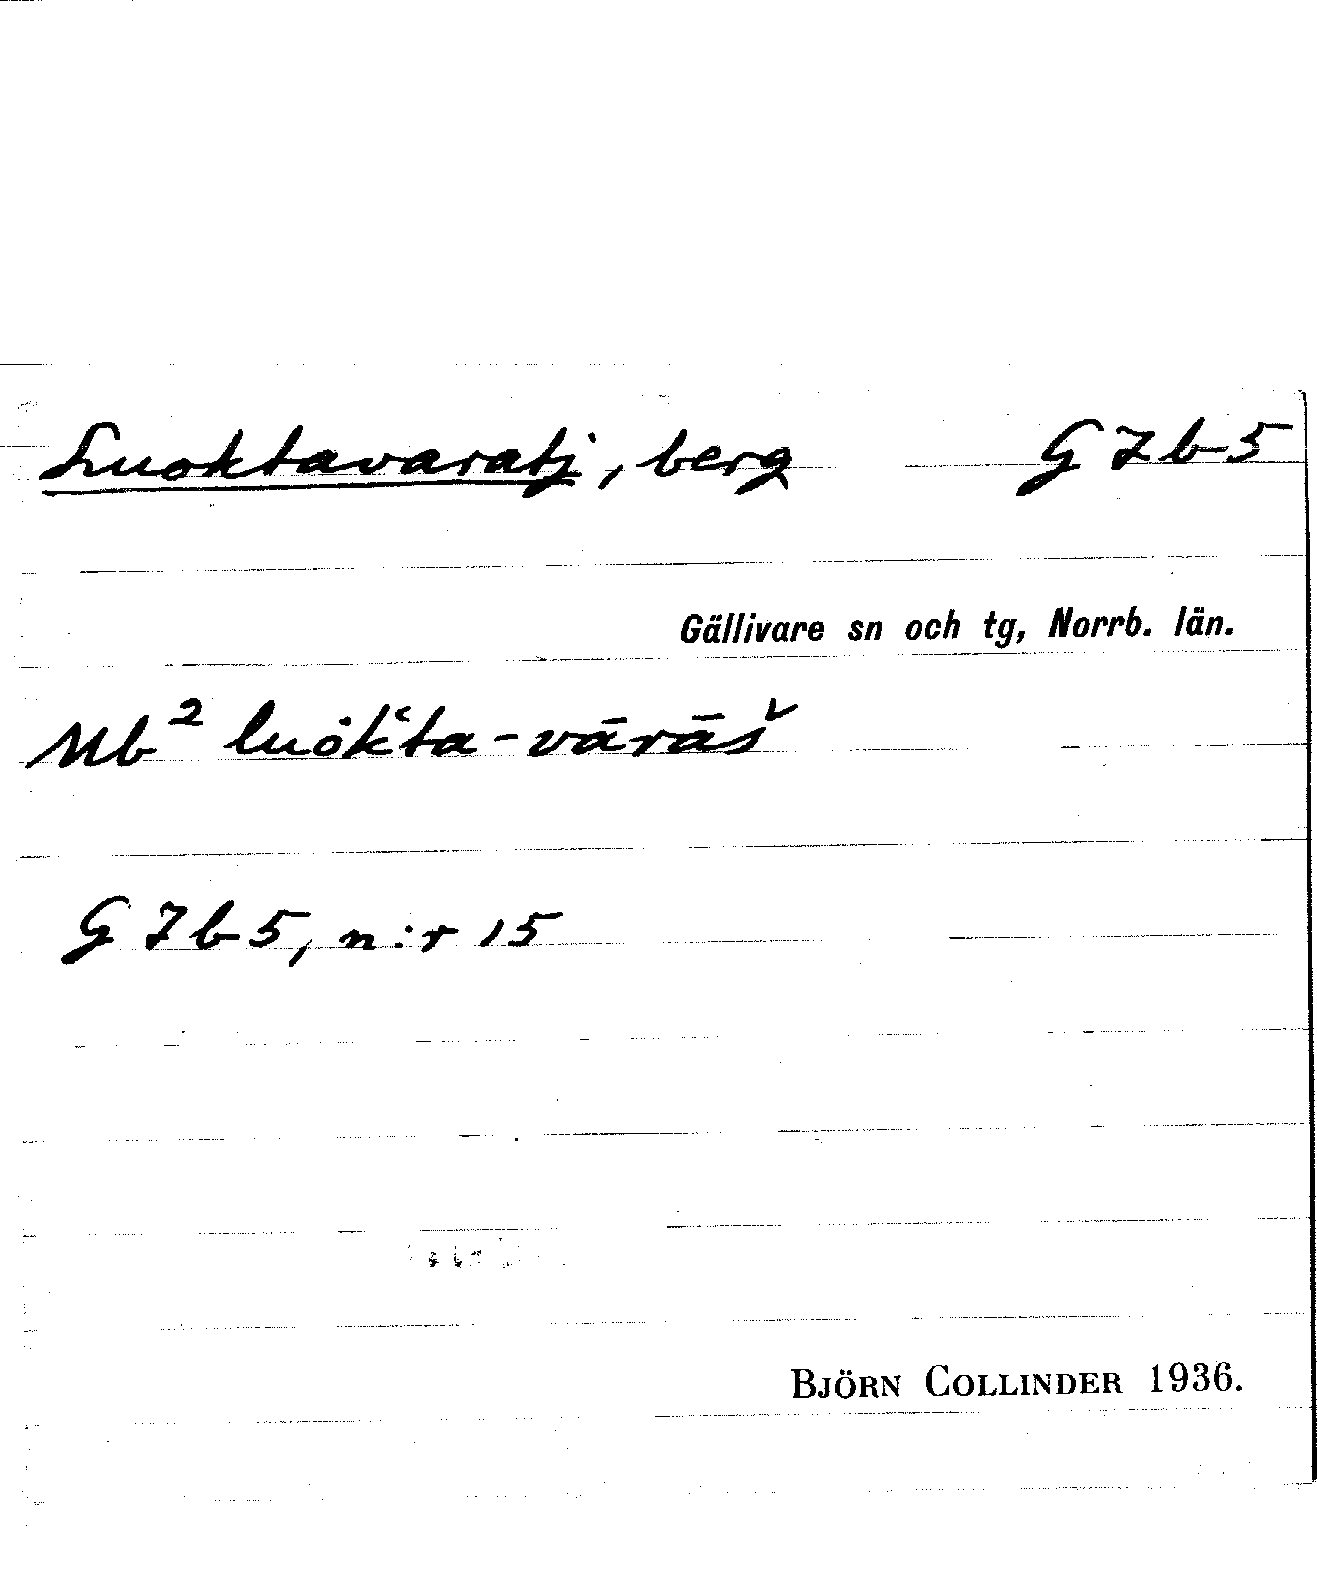 Luoktavaratj, berg G 7 b 5
Gällivare sn och tg, Norrb. län.
Mb² luȯk̀‘ta-vārāš
G 7 b 5, n:r 15
BJÖRN COLLINDER 1936.